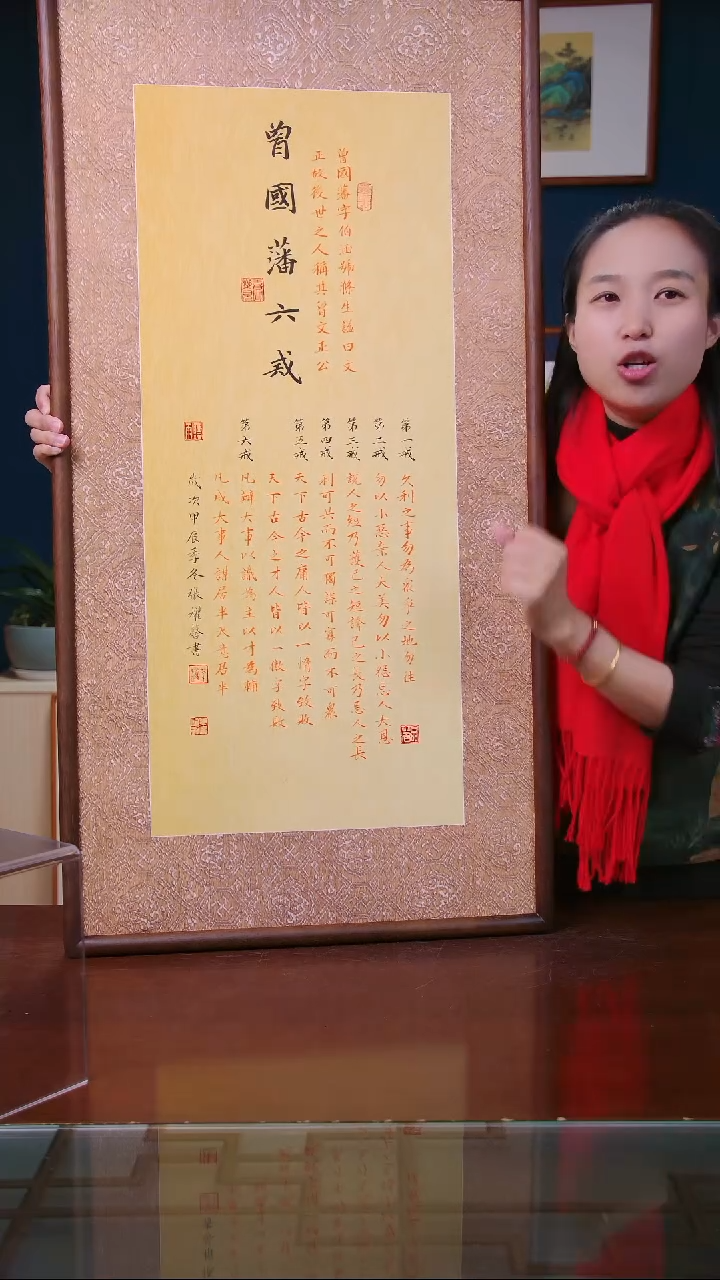 曾國藩六戒
曾國藩字伯涵號滌生謚曰文
正故後世之人稱其曾文正公
第一戒 久利之事勿為眾爭之地勿往
第二戒 勿以小惡棄人大美勿以小怨忘人大恩
第三戒 說人之短乃護己之短誇己之長乃忌人之長
第四戒 利可共而不可獨謀可寡而不可眾
第五戒 天下古今之庸人皆以一惰字致敗
天下古今之才人皆以一傲字致敗
第六戒 凡辦大事以識為主以才為輔
凡成大事人謀居半天意居半
歲次甲辰季冬張耀書